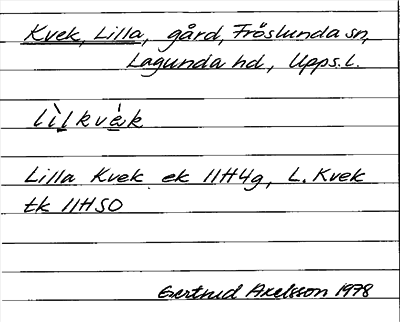 Kvek, Lilla, gård, Fröslunda sn,
Lagunda hd, Upps.l.
lìlkvèk
Lilla Kvek ek 11H4g, L. Kvek
tk 11HSO
Gertrud Axelsson 1978